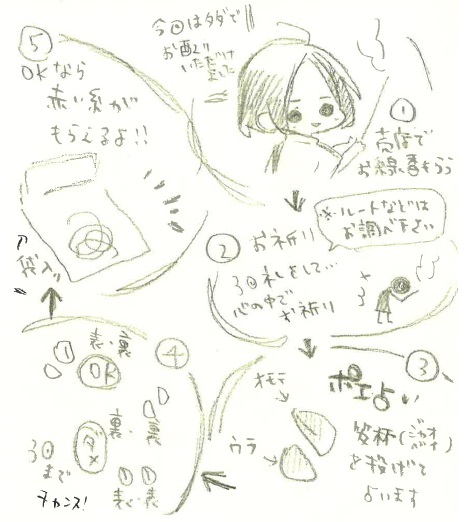 今回はタダで
お配り
いただけ
ました
①
売店で
お線香もらう
※ルートなどは
お調べ下さい
②
お祈り
3回礼をして…
心の中で
お祈り
③
ポエ占い
オモテ
ウラ
筊杯(ジャオ
ベイ)
を投げて
占います
④
表・裏
OK
裏・裏
ダメ
表・表
3回
まで
チャンス!
⑤
OKなら
赤い糸が
もらえるよ!!
袋入り